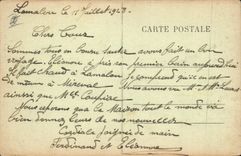 Lamalou le 1 Juillet 1928.
CARTE POSTALE
Chers Tous
Sommes tous en bonne santé avons fait un bon
voyage. Eléonore a pris son premier bain aujourd'hui
Il fait chaud à Lamalou je comprends qu'il en est
de même à Mireval. Nous avons vu Mr & Mme
ainsi que Mme
Nous espérons que la Maison tout le monde va
bien donnez-leurs de nos nouvelles
Cordiale poignée de main
Ferdinand et Eléonore